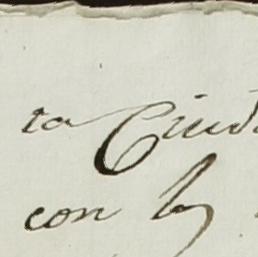 ta Ciud
con la